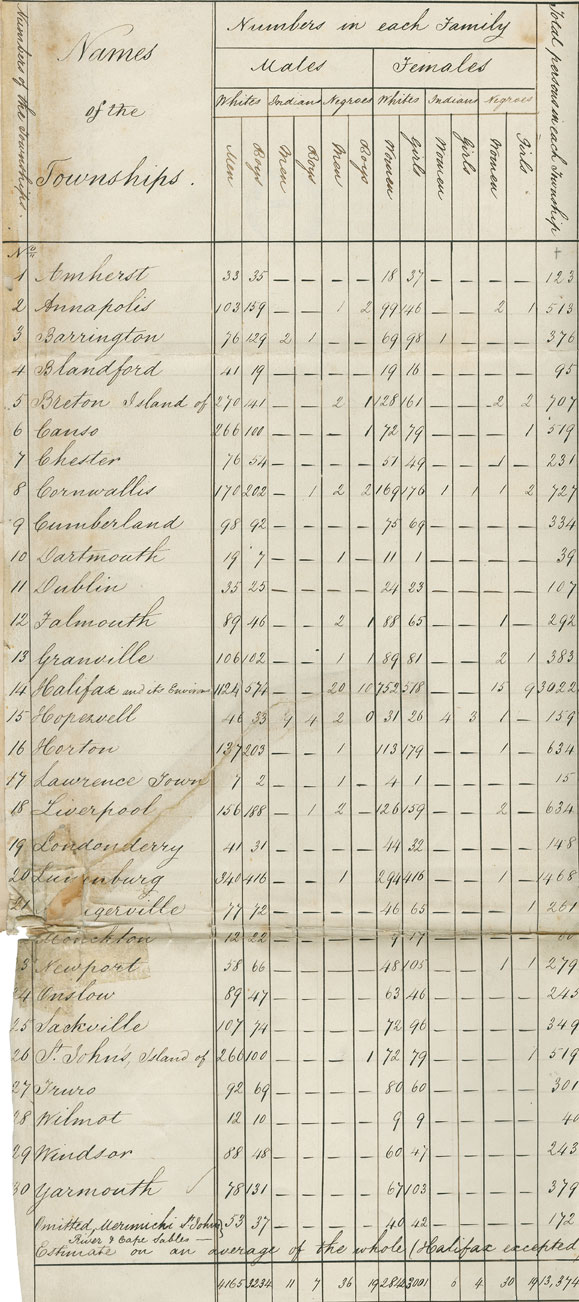 Numbers of the Townships.
Names of the Townships.
Numbers in each Family
Total persons in each Township
Males Females
Whites Indians Negroes Whites Indians Negroes
Men Boys Men Boys Men Boys Women Girls Women Girls Women Girls
No
1 Amherst 33 35 — — — — 18 37 — — — — 123
2 Annapolis 103 159 — — 1 2 99 146 — — 2 1 513
3 Barrington 76 129 2 1 — — 69 98 1 — — — 376
4 Blandford 41 19 — — — — 19 16 — — — — 95
5 Breton Island of 270 141 — — 2 1 128 161 — — 2 2 707
6 Canso 266 100 — — — 1 72 79 — — — 1 519
7 Chester 76 54 — — — — 51 49 — — 1 — 231
8 Cornwallis 170 202 — 1 2 2 169 176 1 1 1 2 727
9 Cumberland 98 92 — — — — 75 69 — — — — 334
10 Dartmouth 19 7 — — 1 — 11 1 — — — — 39
11 Dublin 35 25 — — — — 24 23 — — — — 107
12 Falmouth 89 46 — — 2 1 88 65 — — 1 — 292
13 Granville 106 102 — — 1 1 89 81 — — 2 1 383
14 Halifax and its Environs 1124 574 — — 20 10 752 518 — — 15 9 3022
15 Hopewell 46 33 4 2 0 31 26 4 3 1 — 159
16 Horton 137 203 — — 1 113 179 — — 1 — 634
17 Lawrence Town 7 2 — — 1 — 4 1 — — — — 15
18 Liverpool 156 188 — 1 2 — 126 159 — — 2 — 634
19 Londonderry 41 31 — — — — 44 32 — — — — 148
20 Lunenburg 340 416 — — 1 — 294 416 — — 1 — 1468
21 gerville 77 72 — — — — 46 65 — — — 1 261
Monckton 12 22 — — — — 9 17 — — — — 60
3 Newport 58 66 — — — — 48 105 — — 1 1 279
4 Onslow 89 47 — — — — 63 46 — — — — 245
25 Sackville 107 74 — — — — 72 96 — — — — 349
26 St. John's, Island of 266 100 — — — 1 72 79 — — — 1 519
27 Truro 92 69 — — — — 80 60 — — — — 301
28 Wilmot 12 10 — — — — 9 9 — — — — 40
29 Windsor 88 48 — — — — 60 47 — — — — 243
30 Yarmouth 78 131 — — — — 67 103 — — — — 379
Omitted, Merimichi St. John 53 37 — — — — 40 42 — — — — 172
River & Cape Sables —
Estimate on an average of the whole (Halifax excepted
4165 3234 11 7 36 19 2842 3001 6 4 30 19 13,374